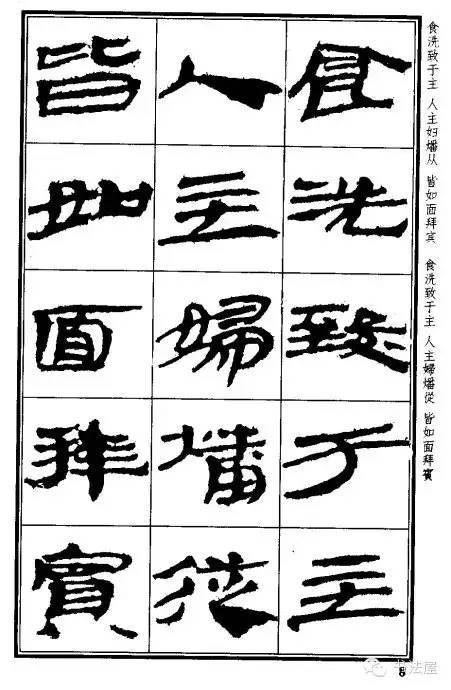 食洗致于主 人主妇燔从 皆如面拜宾 食洗致于主 人主婦燔從 皆如面拜賓
食洗致于主
人主婦燔從
皆如面拜賓
8
书法屋